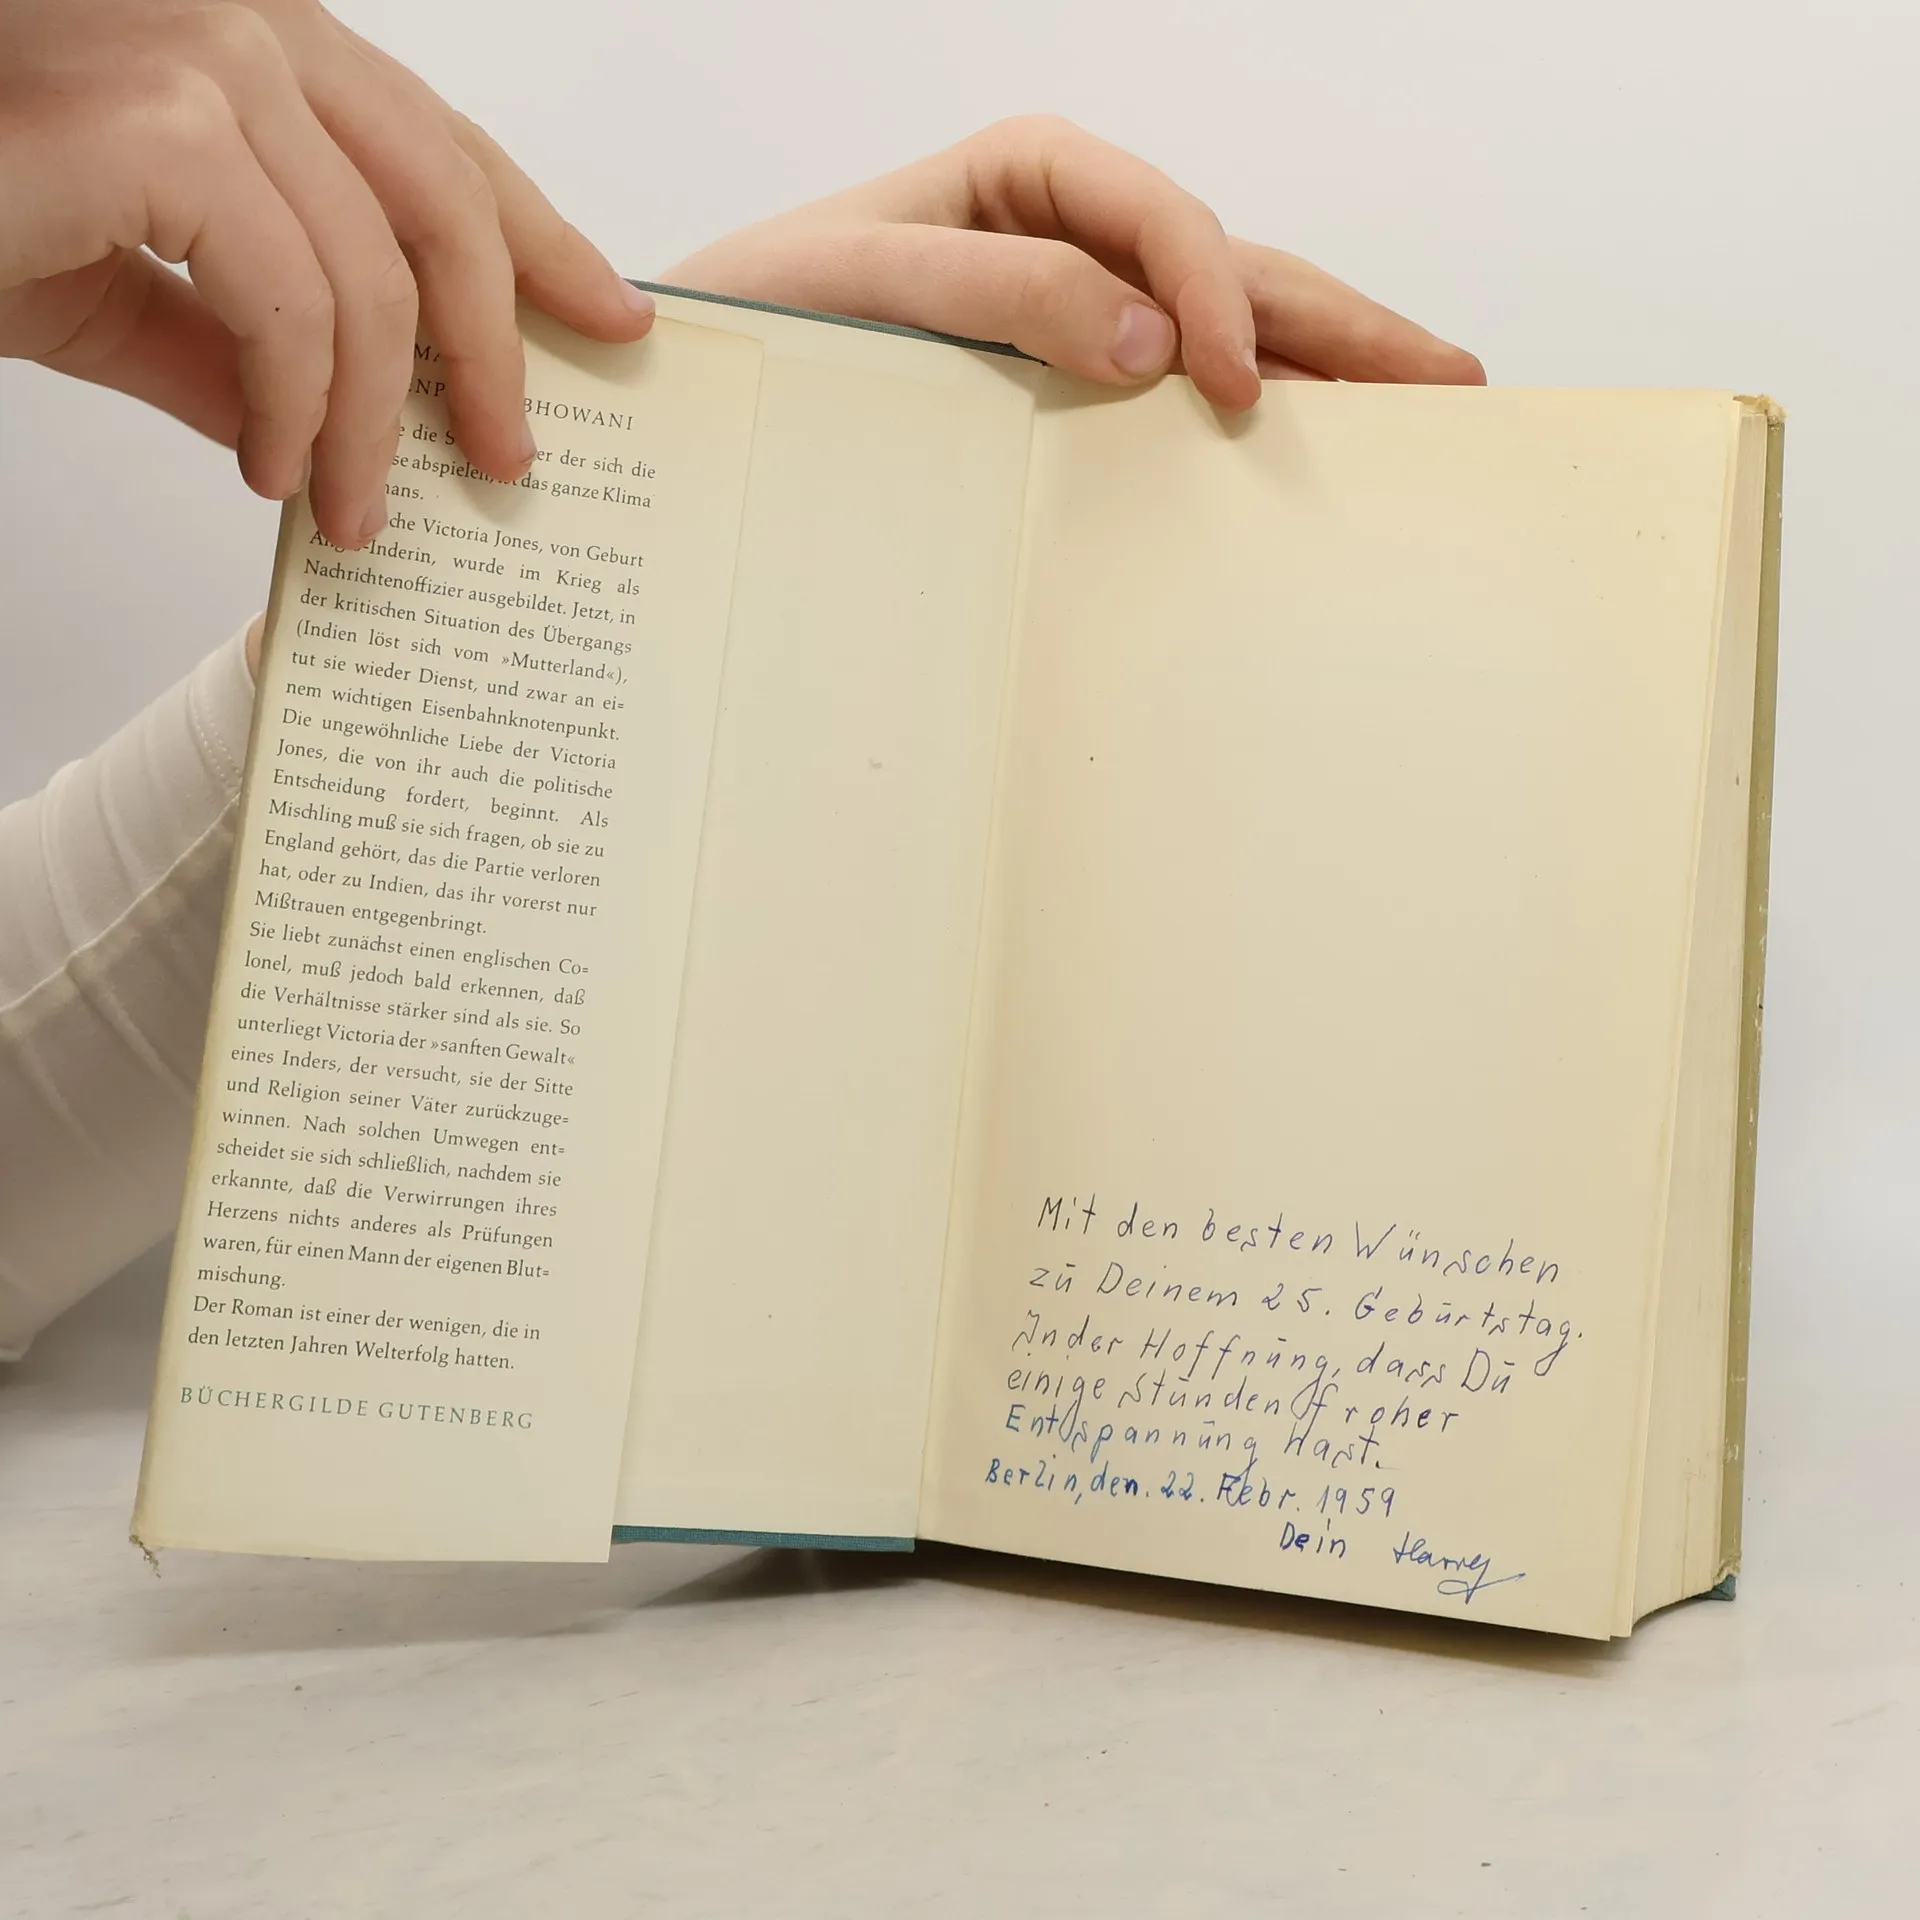 BHOWANI
die er der sich die
se abspielen, das ganze Klima
che Victoria Jones, von Geburt
Inderin, wurde im Krieg als
Nachrichtenoffizier ausgebildet. Jetzt, in
der kritischen Situation des Übergangs
(Indien löst sich vom »Mutterland«),
tut sie wieder Dienst, und zwar an ei=
nem wichtigen Eisenbahnknotenpunkt.
Die ungewöhnliche Liebe der Victoria
Jones, die von ihr auch die politische
Entscheidung fordert, beginnt. Als
Mischling muß sie sich fragen, ob sie zu
England gehört, das die Partie verloren
hat, oder zu Indien, das ihr vorerst nur
Mißtrauen entgegenbringt.
Sie liebt zunächst einen englischen Co=
lonel, muß jedoch bald erkennen, daß
die Verhältnisse stärker sind als sie. So
unterliegt Victoria der »sanften Gewalt«
eines Inders, der versucht, sie der Sitte
und Religion seiner Väter zurückzuge=
winnen. Nach solchen Umwegen ent=
scheidet sie sich schließlich, nachdem sie
erkannte, daß die Verwirrungen ihres
Herzens nichts anderes als Prüfungen
waren, für einen Mann der eigenen Blut=
mischung.
Der Roman ist einer der wenigen, die in
den letzten Jahren Welterfolg hatten.
BÜCHERGILDE GUTENBERG
Mit den besten Wünschen
zu Deinem 25. Geburtstag.
In der Hoffnung, dass Du
einige Stunden froher
Entspannung hast.
Berlin, den. 22. Febr. 1959
Dein Harry